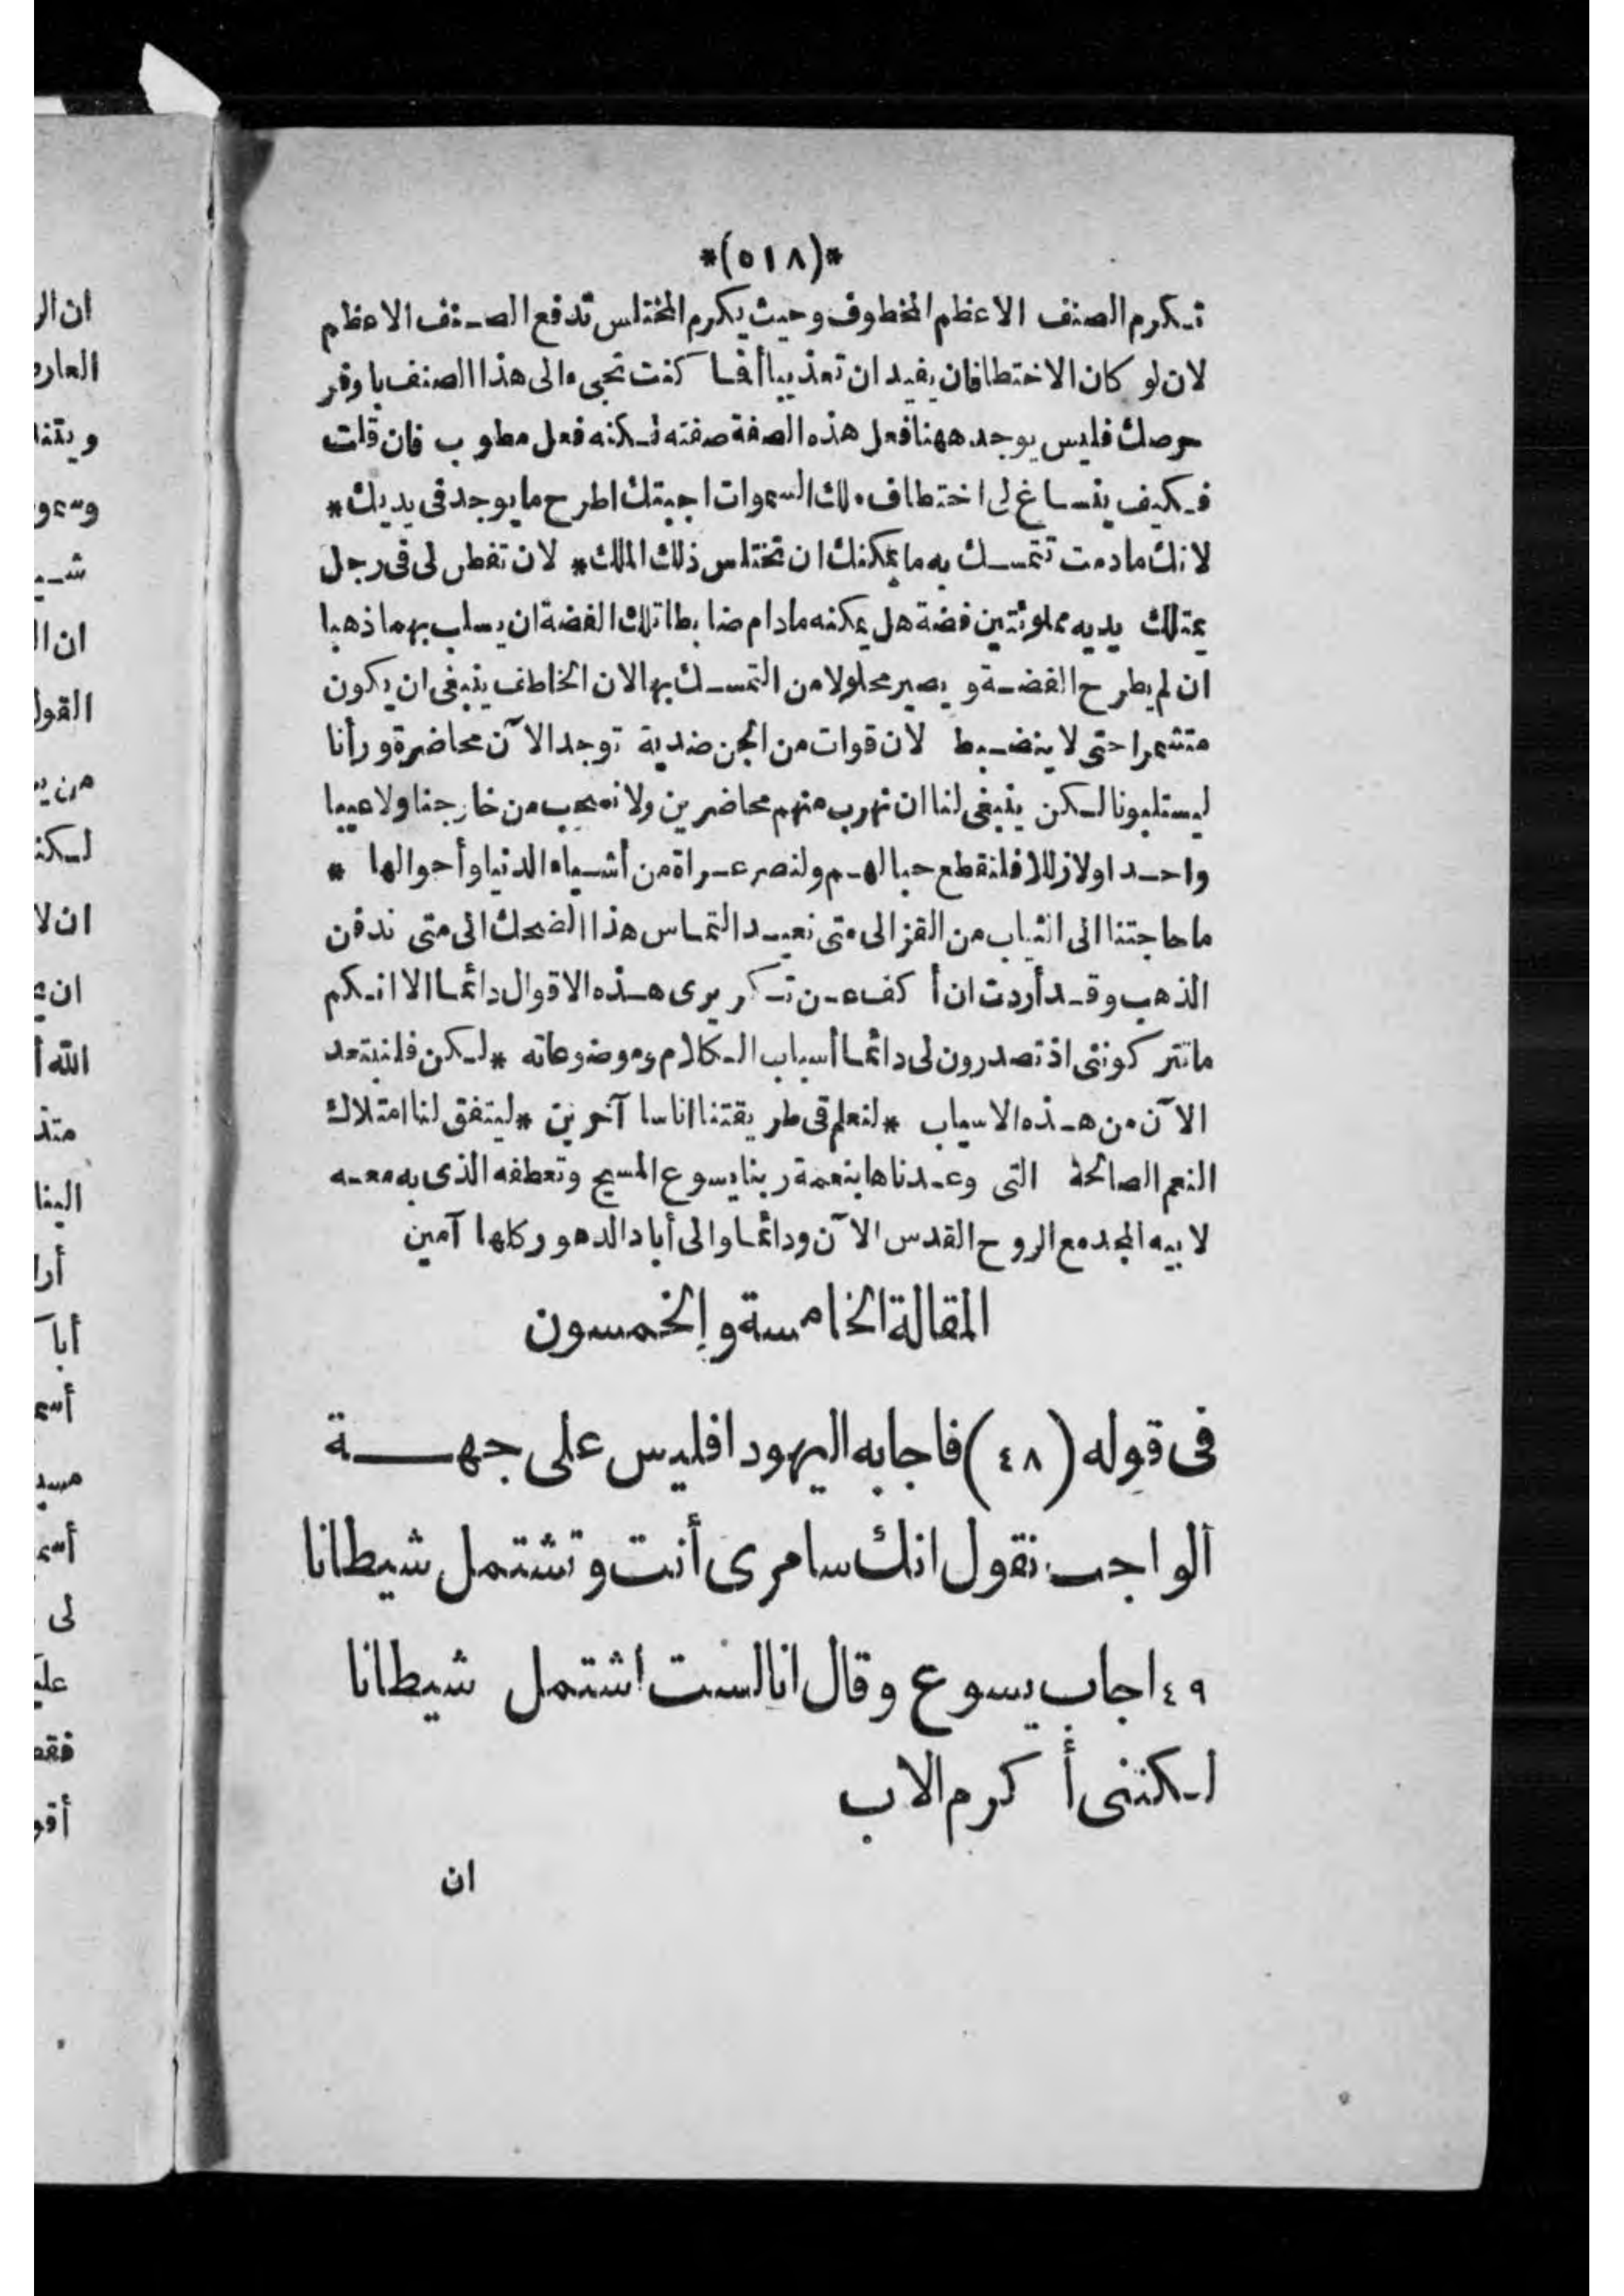 *(٥١٨)*
تكرم الصنف الاعظم المخطوف وحيث يكرم المختلس تدفع الصنف الاعظم
لان لو كان الاختطافان يفيدان تعذيبا أفما كنت تجىء الى هذا الصنف باوفر
حرصك فليس يوجد ههنا فعل هذه الصفة صفته لكنه فعل مطوب فان قلت
فكيف ينساغ لى اختطاف ملك السموات اجبتك اطرح ما يوجد فى يديك*
لانك مادمت تتمسك به ما يمكنك ان تختلس ذلك الملك* لان تفطن لى فى رجل
يمتلك يديه مملوئتين فضة هل يمكنه مادام ضابطا تلك الفضة ان يسلب بهما ذهبا
ان لم يطرح الفضة و يصير محلولا من التمسك بها لان الخاطف ينبغى ان يكون
متشمرا حتى لا ينضبط لان قوات من الجن ضدية توجد الآن محاضرة ورأنا
ليستلبونا لكن ينبغى لنا ان نهرب منهم محاضرين ولا نسحب من خارجنا ولا عيبا
واحدا ولا زللا فلنقطع حبالهم ولنصر عراة من أشياء الدنيا وأحوالها *
ما حاجتنا الى الثياب من القز الى متى نعيد التماس هذا الضحك الى متى ندفن
الذهب وقد أردت ان أ كف عن تكريرى هذه الاقوال دائما الا انكم
ماتتر كوننى اذ تصدرون لى دائما أسباب الكلام وموضوعاته *لكن فلنبتعد
الآن من هذه الاسباب *لنعلم فى طريقتنا اناسا آخرين *ليتفق لنا امتلاك
النعم الصالحة التى وعدناها بنعمة ربنا يسوع المسيح وتعطفه الذى به معه
لابيه المجد مع الروح القدس الآن ودائما والى أباد الدهور كلها آمين
المقالة الخامسة والخمسون
فى قوله (٤٨) فاجابه اليهود افليس على جهة
الواجب نقول انك سامرى أنت وتشتمل شيطانا
٤٩ اجاب يسوع وقال انا لست اشتمل شيطانا
لكننى أ كرم الاب
ان
ان الر
ان ا
القول
ان لا
لى